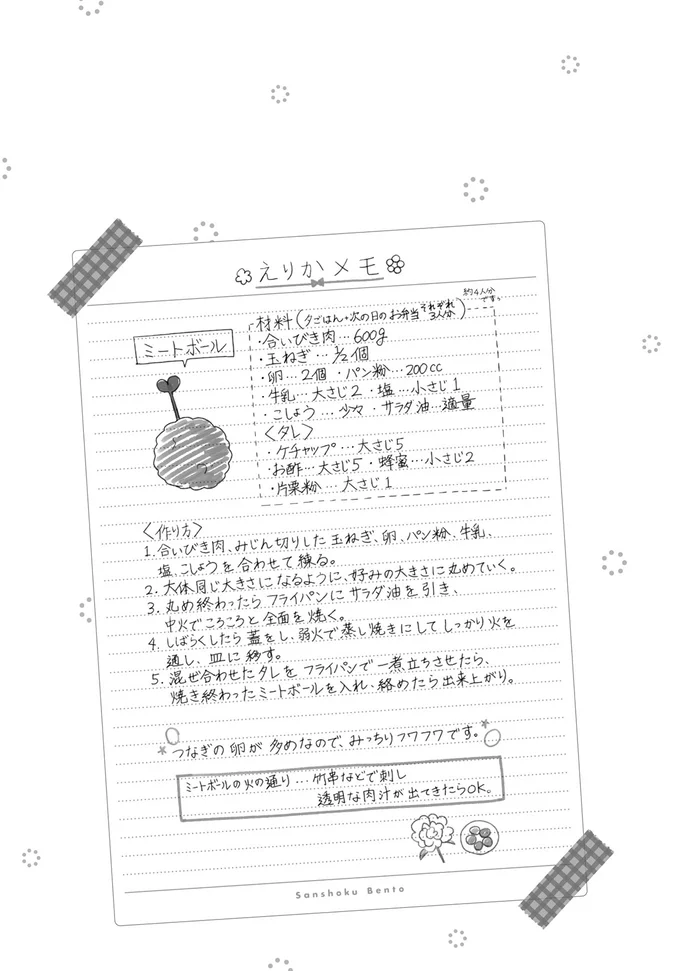 えりかメモ
ミートボール
材料(夕ごはん・次の日のお弁当それぞれ3人分)
約4人分です。
・合いびき肉…600g
・玉ねぎ…1/2個
・卵…2個・パン粉…200cc
・牛乳…大さじ2・塩…小さじ1
・こしょう…少々・サラダ油…適量
〈タレ〉
・ケチャップ…大さじ5
・お酢…大さじ5・蜂蜜…小さじ2
・片栗粉 大さじ1
〈作り方〉
1.合いびき肉、みじん切りした玉ねぎ、卵、パン粉、牛乳、
塩、こしょうを合わせて練る。
2.大体同じ大きさになるように、好みの大きさに丸めていく。
3.丸め終わったらフライパンにサラダ油を引き、
中火でころころと全面を焼く。
4.しばらくしたら蓋をし、弱火で蒸し焼きにしてしっかり火を
通し、皿に移す。
5.混ぜ合わせたタレをフライパンで一煮立ちさせたら、
焼き終わったミートボールを入れ、絡めたら出来上がり。
つなぎの卵が多めなので、みっちりフワフワです。
ミートボールの火の通り…竹串などで刺し
透明な肉汁が出てきたらOK。
Sanshoku Bento